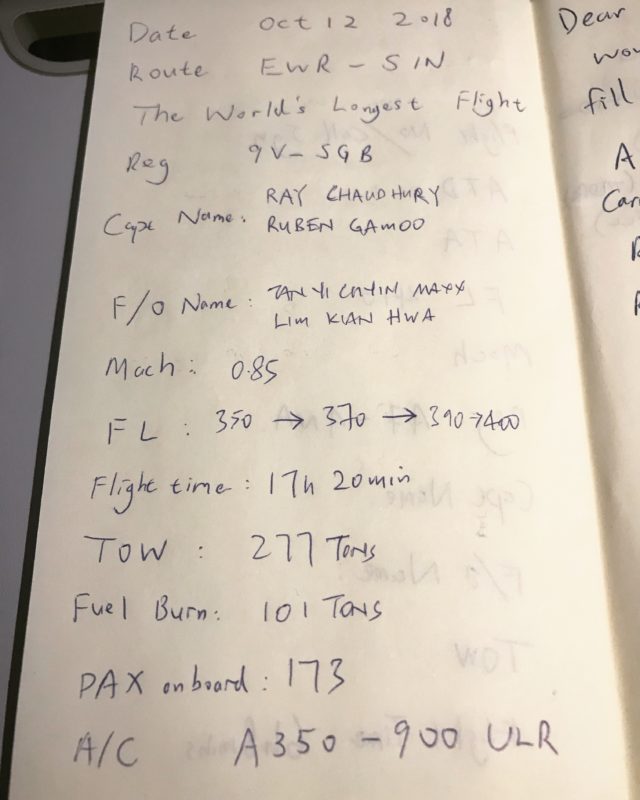 Date Oct 12 2018
Route EWR - SIN
The World's Longest Flight
Reg 9V-SGB
RAY CHAUDHURY
Capt Name: RUBEN GAMOO
F/O Name: TAN YI CHYIN MAXX
LIM KIAN HWA
Mach: 0.85
FL : 350 → 370 → 390 → 400
Flight time: 17h 20min
TOW : 277 TONS
Fuel Burn: 101 TONS
PAX onboard: 173
A/C A350-900 ULR
Dear
fill
A